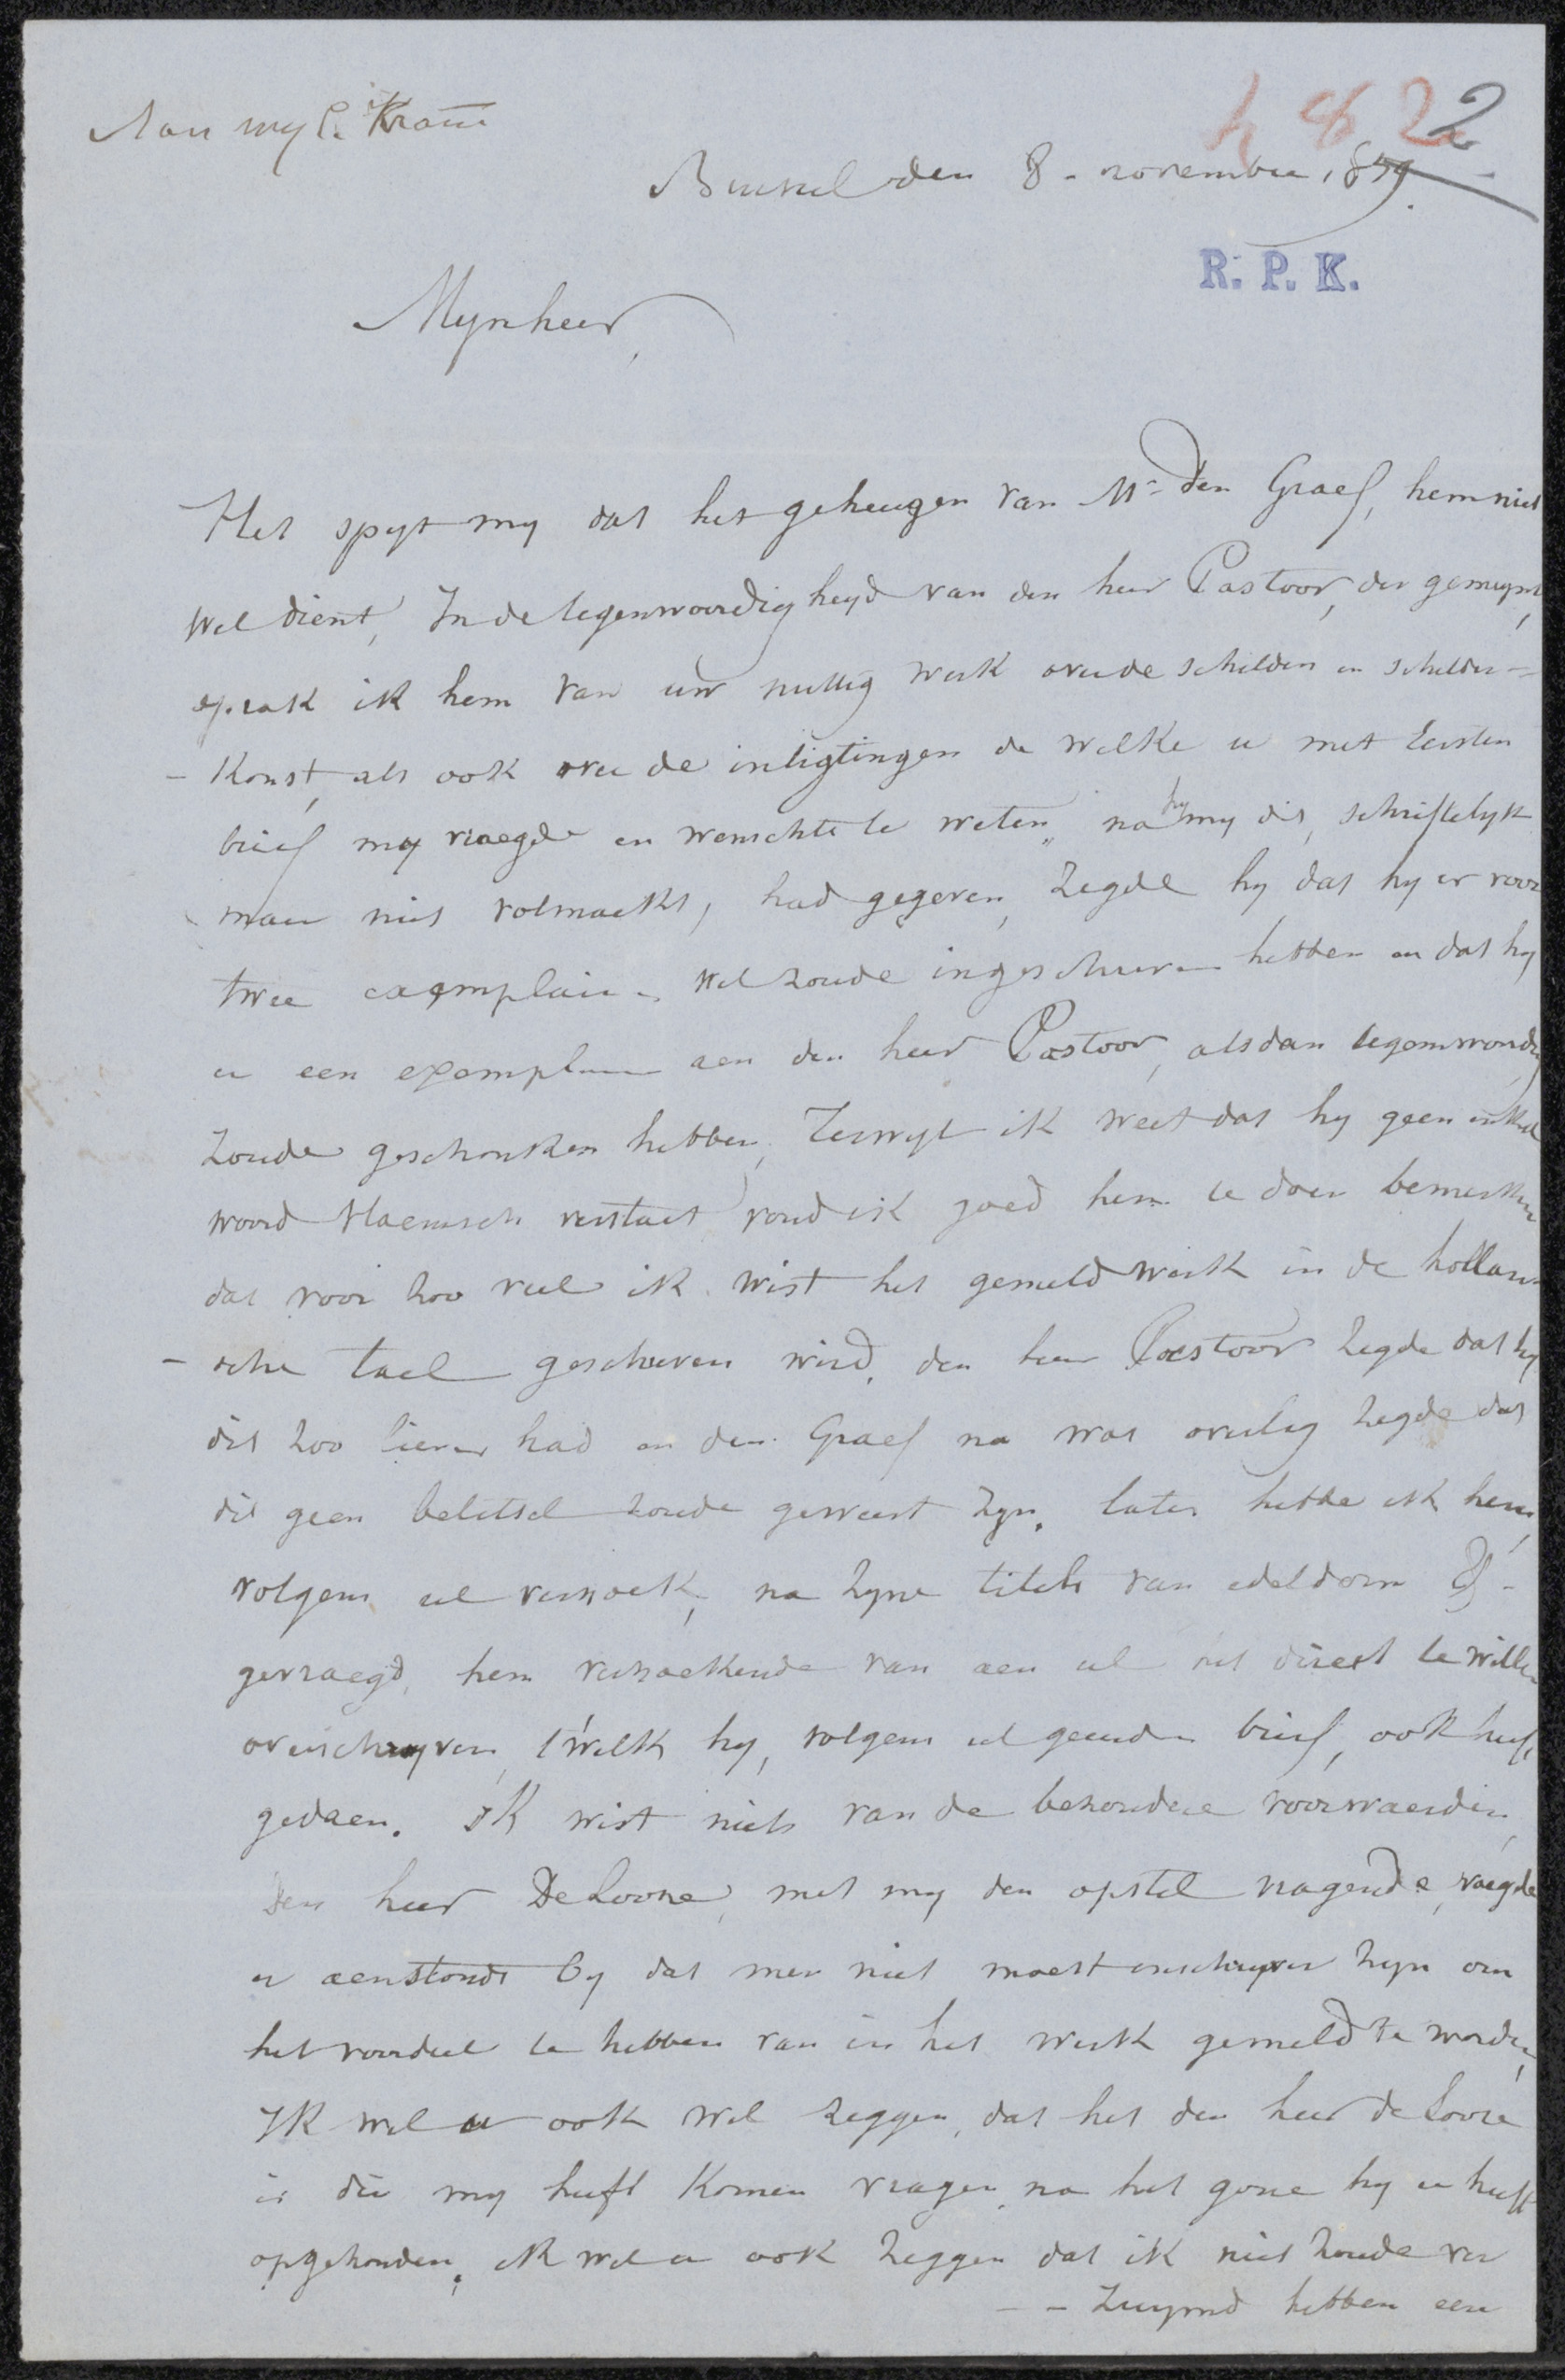 Aan my C. Kram
4822
Brussel den 8 - november 1859.
R. P. K.
Mynheer,
Het spyt my dat het geheugen van Mr den Graef, hem niet
wel dient, In de tegenwoordigheyd van den heer Pastoor, der gemeynt,
sprak ik hem van uw nuttig werk over de schilders en schilder=
- konst, als ook over de inligtingen de welke u met eersten
brief my vraegde en wenschte te weten, na hy my dit, schriftelyk
maer niet volmaekt, had gegeven, zegde hy dat hy er voor
twee exemplair wel zoude ingeschreven hebben en dat hy
er een exemplair aen den heer Pastoor, alsdan tegenwoordig
zoude geschonken hebben, Terwyl ik weet dat hy geen enkel
woord vlaemsch verstaet vond ik goed hem te doen bemerken
dat voor zoo veel ik wist het gemeld werk in de hollan-
- sche tael geschreven wird. den heer Pastoor zegde dat hy
dit zoo liever had en den Graef na wat overleg zegde dat
dit geen beletsel zoude geweest zyn. later hebbe ik hem,
volgens ul verzoek, na zyne titels van edeldom &-
gevraegd, hem verzoekende van aen ul het direct te willen
overschryven, 'twelk hy, volgens ul geeerden brief, ook heeft
gedaen. Ik wist niets van de bezondere voorwaerden,
Den heer De Loose, met my den opstel vragende, vraegde
er aenstonds by dat men niet moest inschryver zyn om
het voordeel te hebben van in het werk gemeld te worden,
Ik wil u ook wel zeggen, dat het den heer de Loose
is die my heeft komen vragen, na het gone hy er heeft
opgehouden, ik wil u ook zeggen dat ik niet zoude ver
- - zuymd hebben een